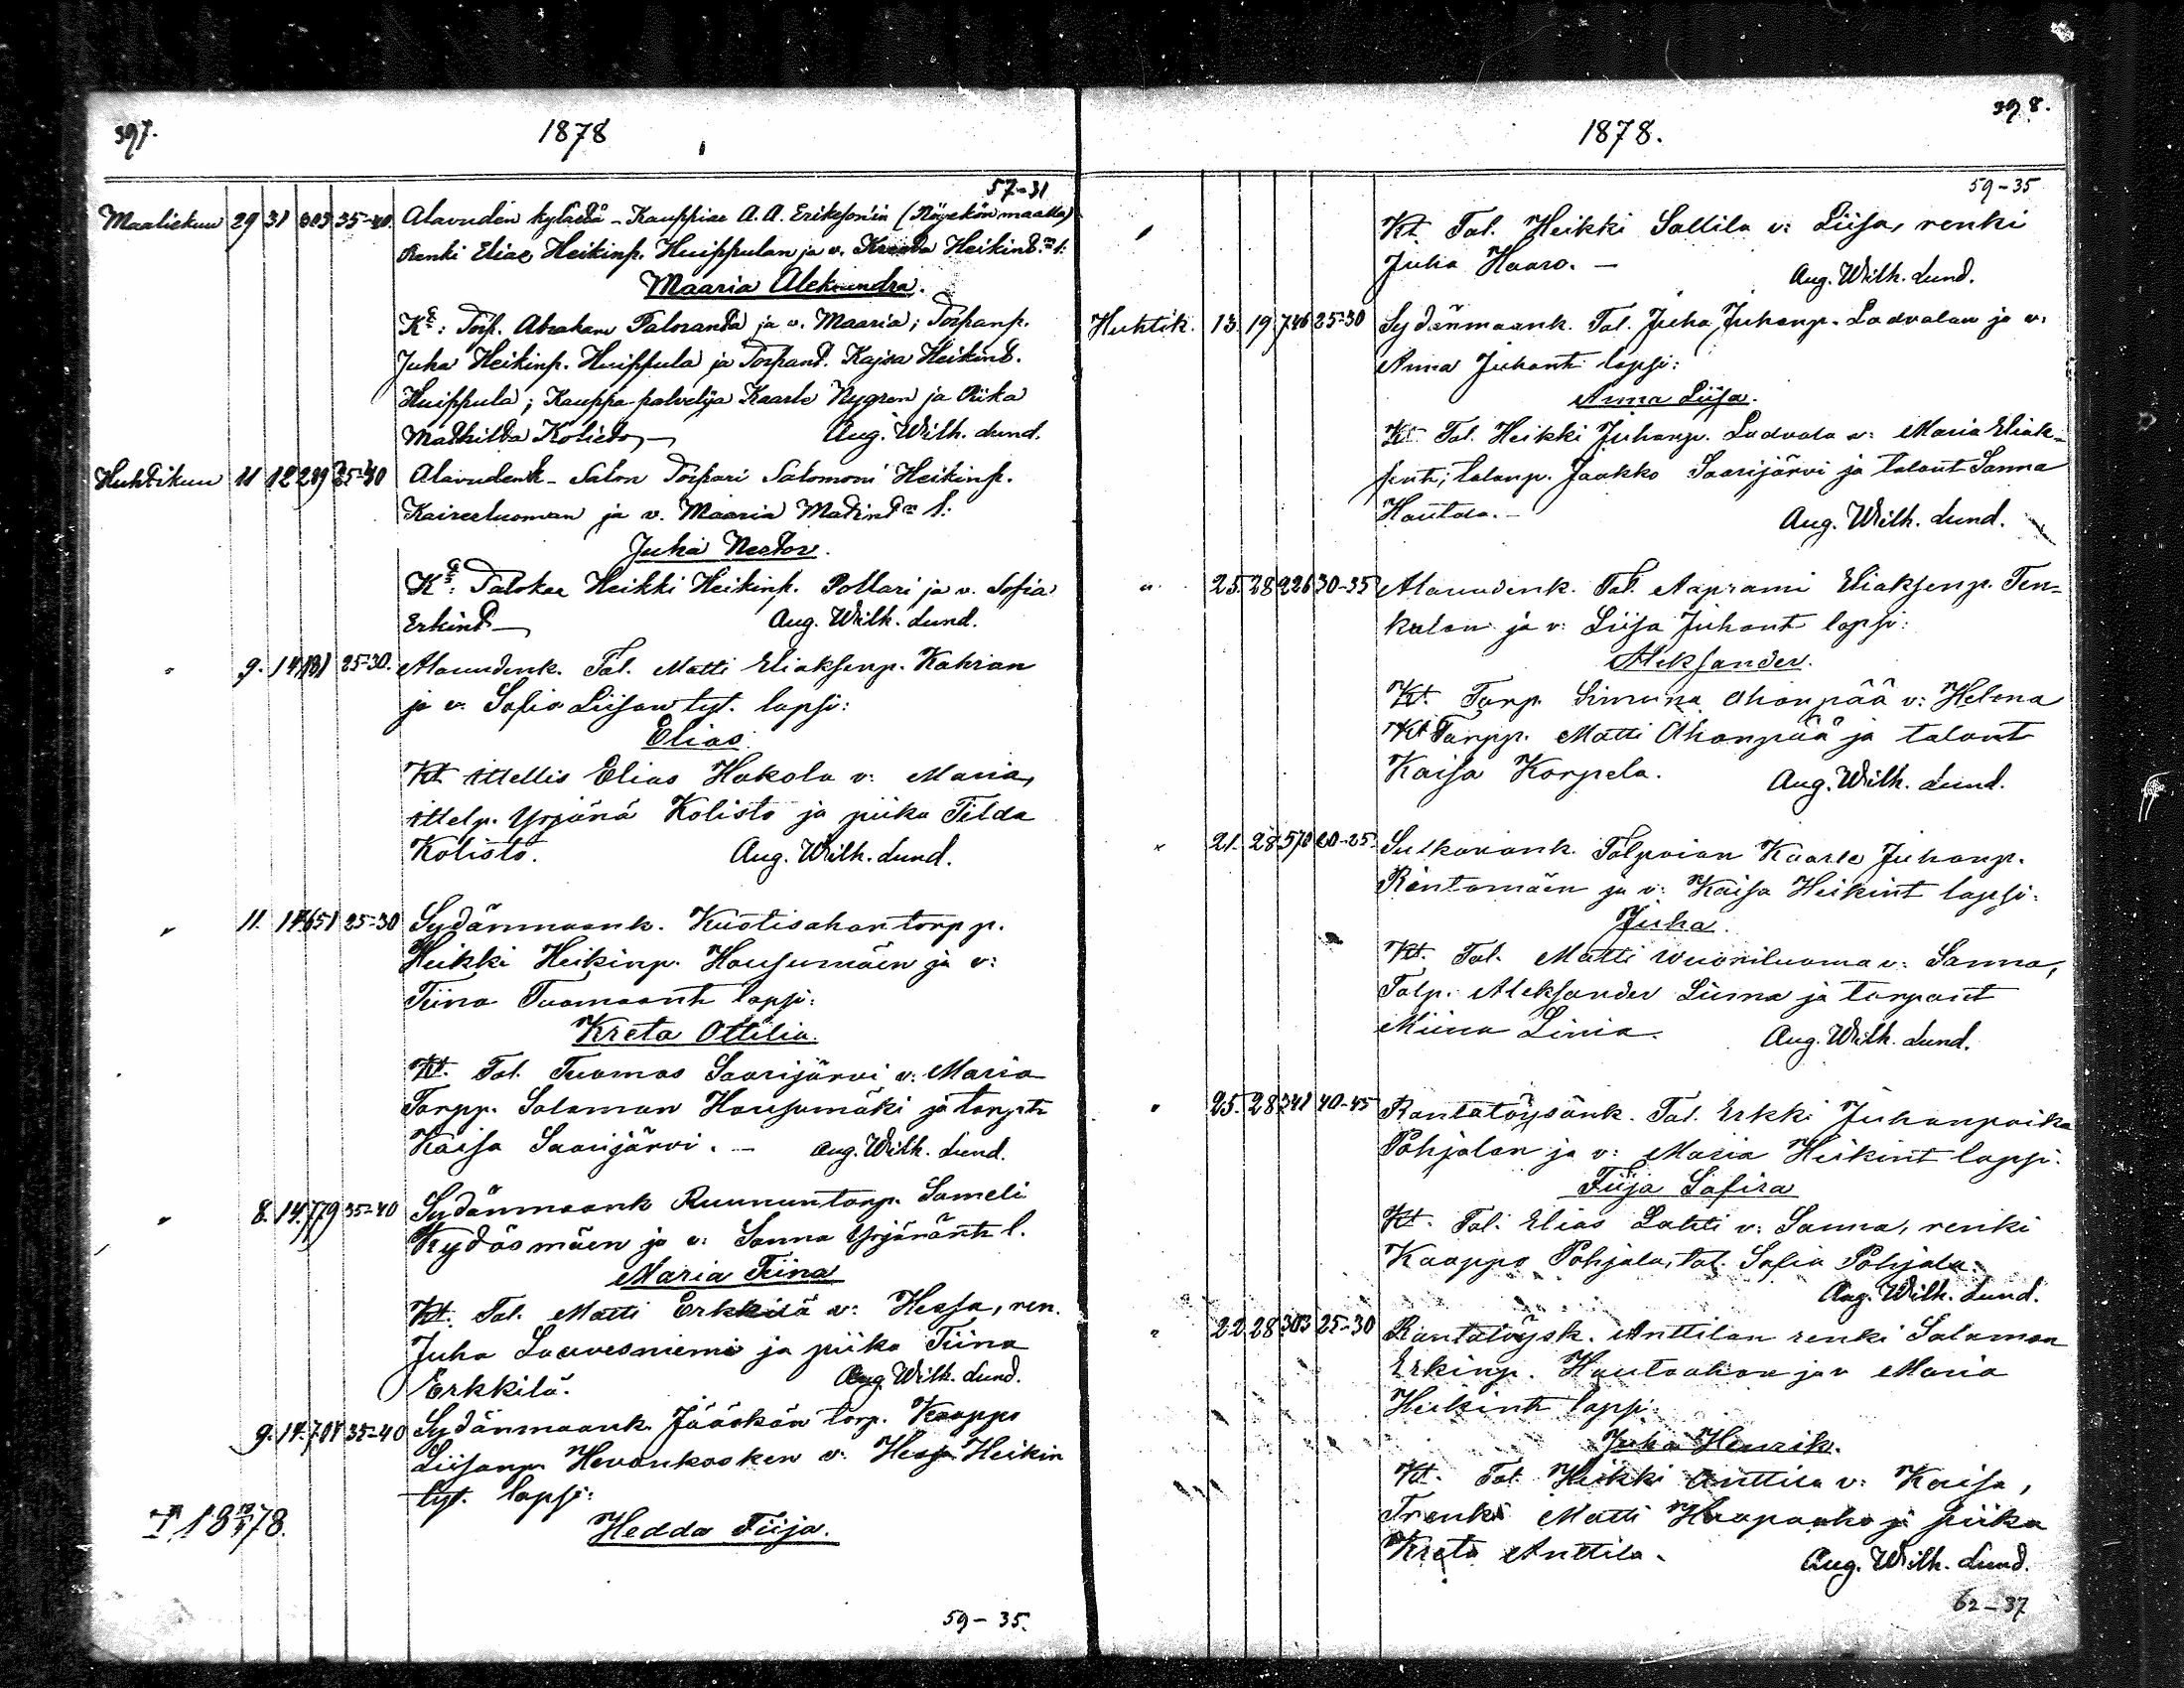 397.
1878
57-31
Maaliskuu 29 31 303 35-40. Alavuden kylästä - Kauppias A. A. Erikson'in (Röyskön maalla)
Renki Elias Heikinp. Huippulan ja v. Kreeta Heikint:n l:
Maaria Aleksandra.
K:t: Torp. Abraham Taloranta ja v. Maaria; Torpanp.
Juha Heikinp. Huippula ja Torpant. Kajsa Heikint.
Huippula; Kauppa-palvelija Kaarle Nygren ja Riika
Mathilta Kolisto,- Aug. Wilh. Lund.
Huhtikuu 11 12 289 35-40 Alavudenk- Salon Torpari Salomoni Heikinp.
ja v. Maaria Matint:n l:
Juha Nestor.
K:t: Talokas Heikki Heikinp. Pollari ja v. Sofia
Erkint- Aug. Wilh. Lund.
" 9. 14 181 25-30. Alavudenk. Tal. Matti Eliaksenp. Kahran
ja v: Sofia Liisan tyt. lapsi:
Elias
Kt. ittellis Elias Hakola v: Maria,
ittelp. Yrjänä Kolisto ja piika Tilda
Kolisto. Aug. Wilh. Lund.
" 11. 14 651 25-30 Sydänmaank. Kustisahan torpp.
Heikki Heikinp. Hausumäen ja v:
Tiina Tuomaant lapsi:
Kreta Ottilia.
Kt. Tal. Tuomas Saarijärvi v: Maria
Torpp. Saloman Hausumäki ja torpt
Kaisa Saarijärvi. - Aug. Wilh. Lund.
" 8. 14. 779 35-40 Sydänmaank Ruununtorp. Sameli
Kydösmäen ja v: Sanna Yrjänänt l.
Maria Tiina
Kt. Tal. Matti Erkkilä v: Hessa, ren.
Juha Lauvesniemi ja piika Tiina
Erkkilä. Aug. Wilh. Lund.
9. 14. 701 35-40 Sydänmaank. Jääskän torp. Kaappo
Liisanp. Hevonkosken v: Hessa Heikin
tyt. lapsi:
Hedda Tiija.
59-35.
398.
1878.
59-35
" Kt. Tal. Heikki Sallila v: Liisa, renki
Juha Haaro. - Aug. Wilh. Lund.
Huhtik. 13. 19 746 25-30 Sydänmaank. Tal. Juha Juhanp. Ladvalan ja v:
Anna Juhant lapsi:
Anna Liisa.
Kt Tal. Heikki Juhanp. Ladvala v: Maria Eliak-
sent; talonp. Jaakko Saarijärvi ja talont Sanna
Hautala. - Aug. Wilh. Lund.
" 25. 28 226 30-35 Alavudenk. Tal. Aaprami Eliaksenp. Ten-
kulan ja v: Liisa Juhant lapsi:
Aleksander.
Kt. Torp. Simuna Ahonpää v: Helena
Kt Torpp. Matti Ahonpää ja talont
Kaisa Korpela. Aug. Wilh. Lund.
" 21. 28 570 20-25. Sulkavank. Talpojan Kaarle Juhanp.
Rintamäen ja v: Kaisa Heikint lapsi:
Juha.
Kt. Tal. Matti Wuoriluoma v: Sanna,
Talp. Aleksander Liima ja torpant
Miina Linia. Aug. Wilh. Lund.
" 25. 28 341 40-45 Rantatöysänk. Tal. Erkki Juhanpoika
Pohjalan ja v: Maria Heikint lapsi:
Tiija Safira
Kt. Tal. Elias Lahti v: Sanna, renki
Kaappo Pohjala, tal. Sofia Pohjala.
Aug. Wilh. Lund.
" 22. 28 303 25-30 Rantatöysk. Anttilan renki Salamon
Erkinp. Hautaahon ja v Maria
Heikint lapsi:
Juha Henrik.
Kt. Tal. Heikki Anttila v: Kaisa,
Trenki Matti Haapaaho ja piika
Kreta Anttila. Aug. Wilh. Lund.
62-37